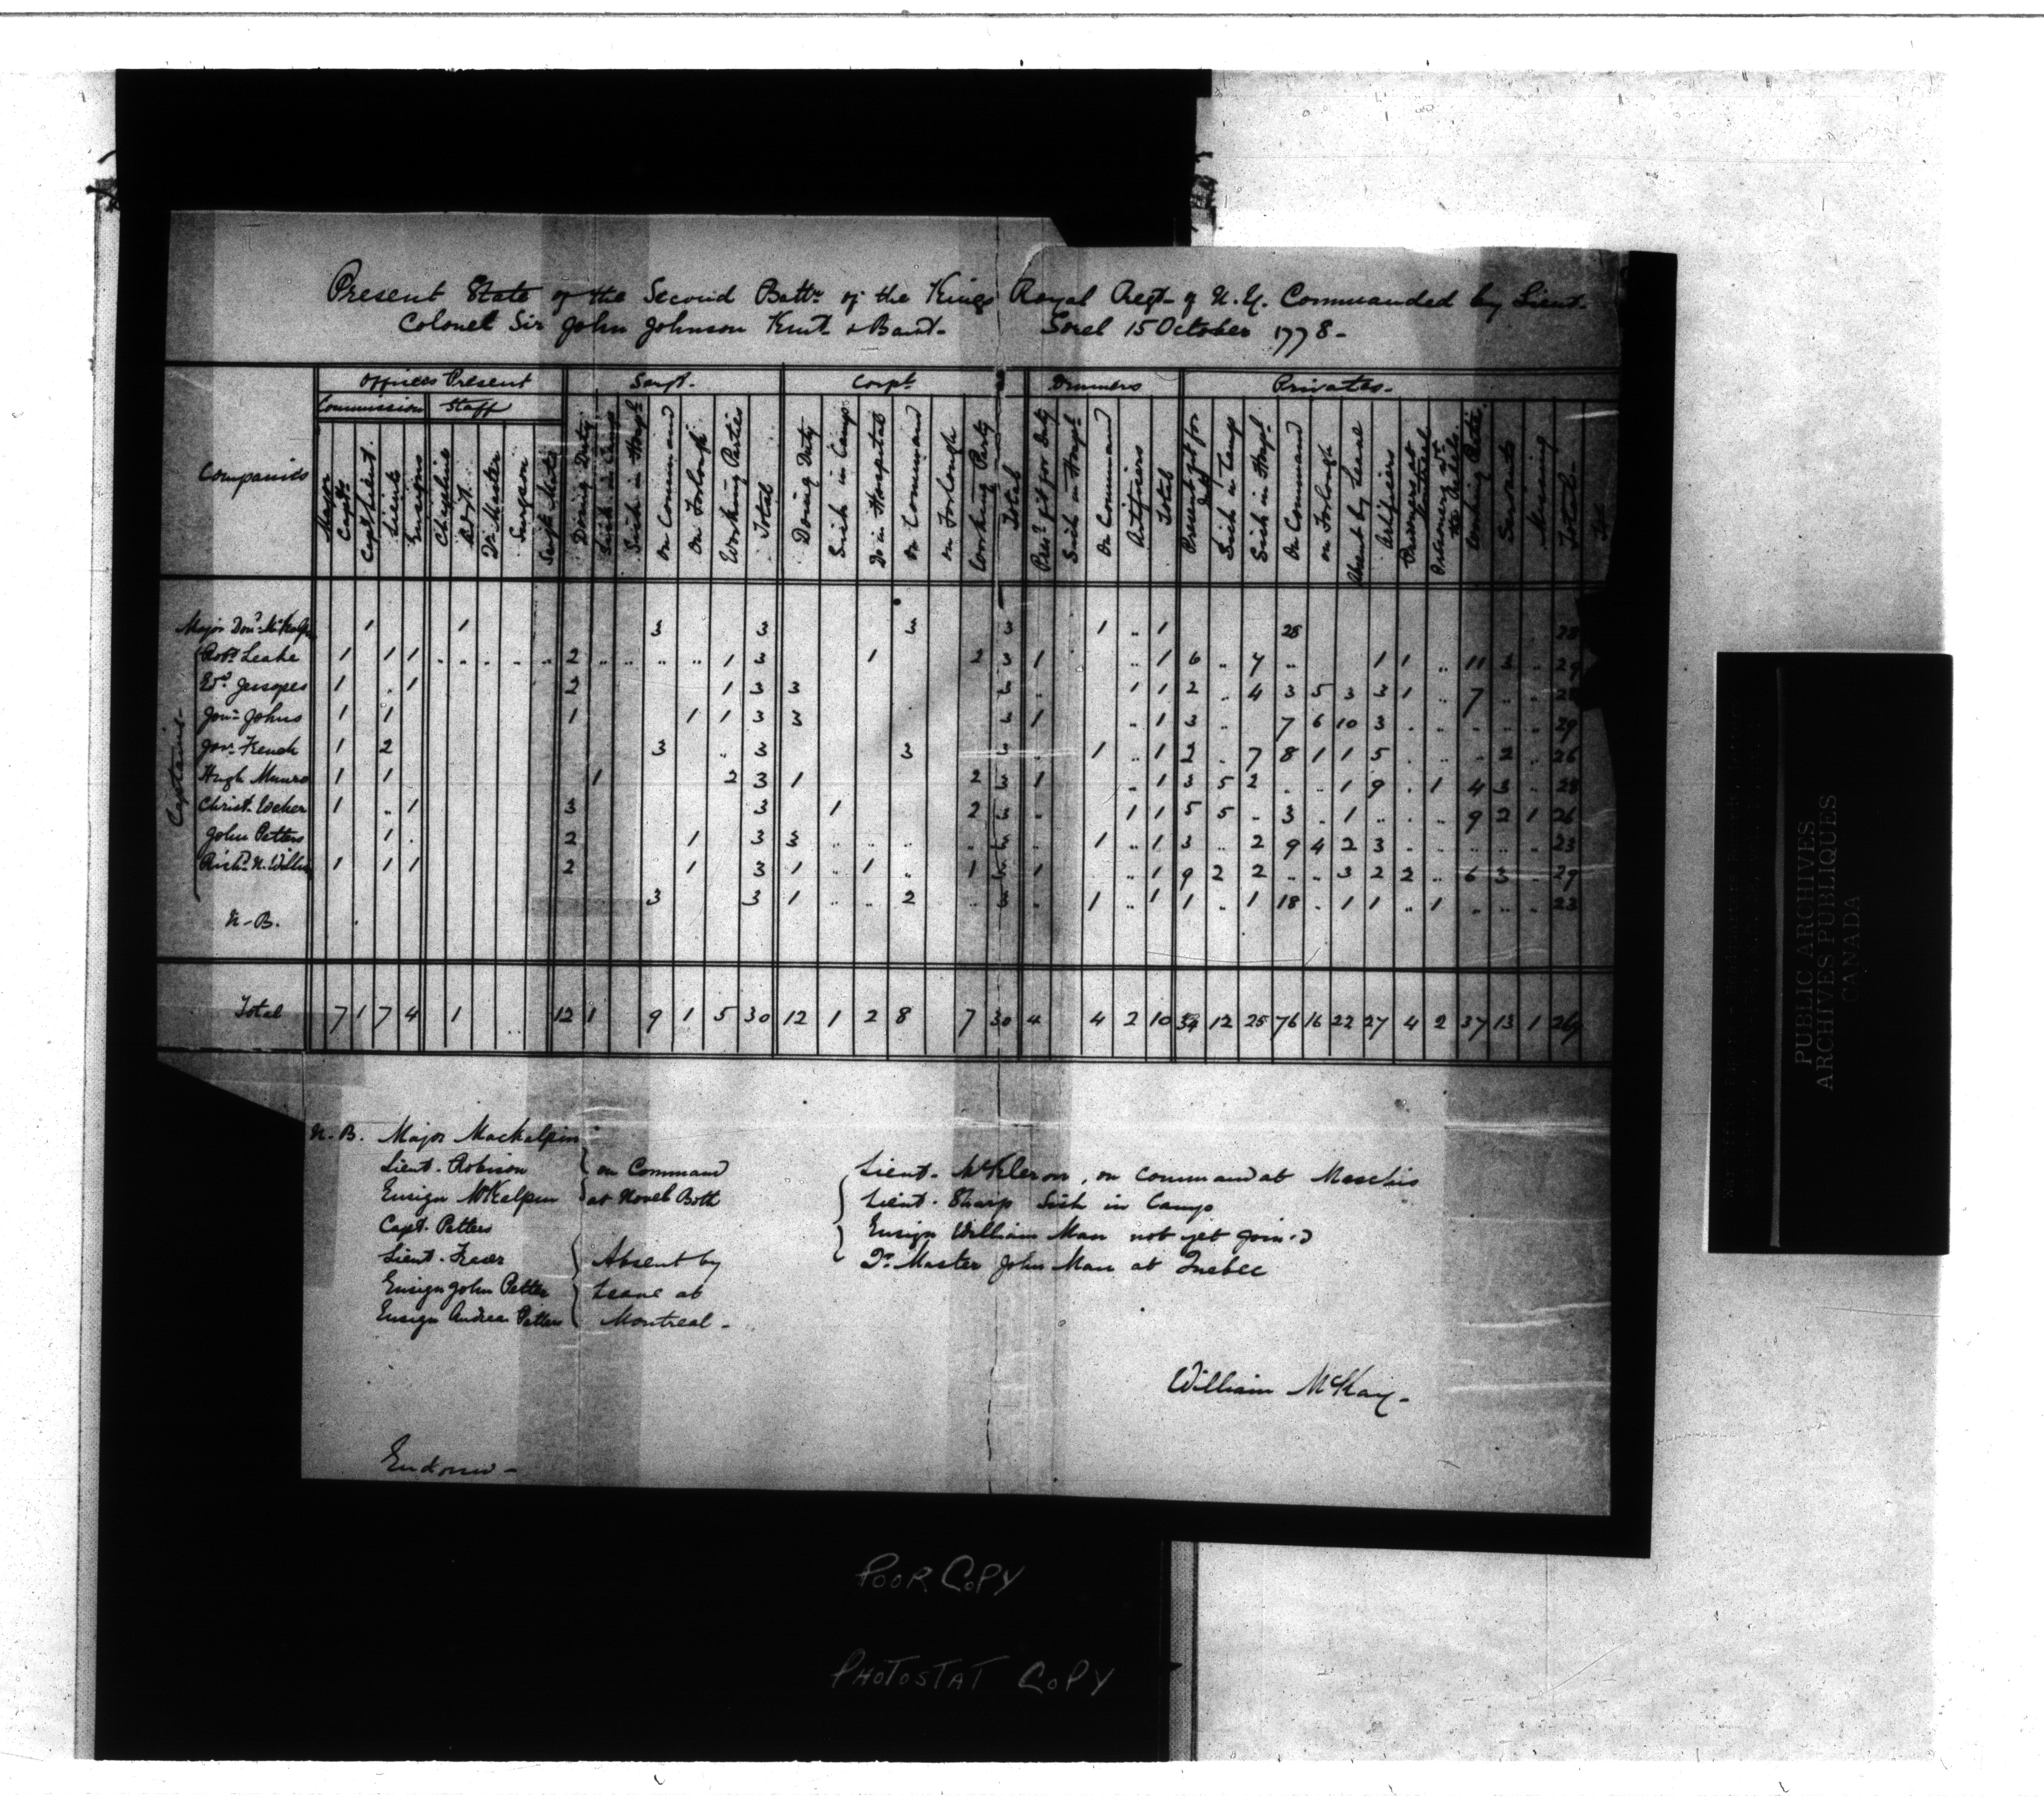 Present State of the Second Battn of the Kings Royal Regt of N.Y. Commanded by Lieut.
Colonel Sir John Johnson Knt & Bart- Sorel 15 October 1778-
Companies
Officers Present
Sergt.
Corpl.
Drummers
Privates-
Commission Staff
Major
Capts
Capt Lieut.
Lieuts
Ensigns
Chaplins
Adjt.
Qr Master
Surgeon
Surgs Mate
Doing Duty
Sick in Camp
Sick in Hospl
on Command
on Forlough
Working Parties
Total
Doing Duty
Sick in Camp
Do in Hospital
on Command
on Forlough
Working Party
Total
Prest fit for Duty
Sick in Hospl
On Command
Artificers
Total
Present fit for Duty
Sick in Camp
Sick in Hospl
On Command
on Forlough
Absent by Leave
Artificers
Prisoners at
Prisoners wt the Rebels
Working Parti
Servants
Missing
Total
Captains-
Major Dond McKalpin 1 1 3 3 3 3 1 .. 1 28 28
Robt Leake 1 1 1 2 1 3 1 2 3 1 .. 1 6 .. 7 .. 1 1 .. 11 3 .. 29
Ed. Jessopes 1 . 1 2 1 3 3 3 .. 1 1 2 .. 4 3 5 3 3 1 .. 7 .. .. 28
Jon Johns 1 1 1 1 1 3 3 3 1 .. 1 3 .. 7 6 10 3 29
Jon French 1 2 3 .. 3 3 3 1 .. 1 2 . 7 8 1 1 5 . . . 2 .. 26
Hugh Munro 1 1 1 2 3 1 2 3 1 .. 1 3 5 2 . . 1 9 . 1 4 3 .. 28
Christ. 1 .. 1 3 3 1 2 3 .. 1 1 5 5 . 3 . 1 .. . .. 9 2 1 26
John Petters 1 . 2 1 3 3 .. .. .. 3 1 .. 1 3 .. 2 9 4 2 3 23
Richd N. 1 1 1 2 1 3 1 .. 1 .. 1 3 1 .. 1 9 2 2 .. .. 3 2 2 .. 6 3 .. 29
3 3 1 .. .. 2 .. 3 .. 1 .. 1 1 .. 1 18 . 1 1 .. 1 . .. . 23
N-B.
Total 7 1 7 4 1 12 1 9 1 5 30 12 1 2 8 7 30 4 4 2 10 34 12 25 76 16 22 27 4 2 37 13 1 269
N.B. Major Mackalpin
Lieut. Robison on Command
Ensign McKalpin at
Capt. Petters
Lieut. Absent by
Ensign John Petter Leave at
Ensign Andrew Petters Montreal-
Lieut. on command at
Lieut. Sharp Sick in Camp
Ensign William Man not yet join.d
Qr. Master John Man at Quebec
William McKay-
POOR COPY
PHOTOSTAT COPY
PUBLIC ARCHIVES
ARCHIVES PUBLIQUES
CANADA